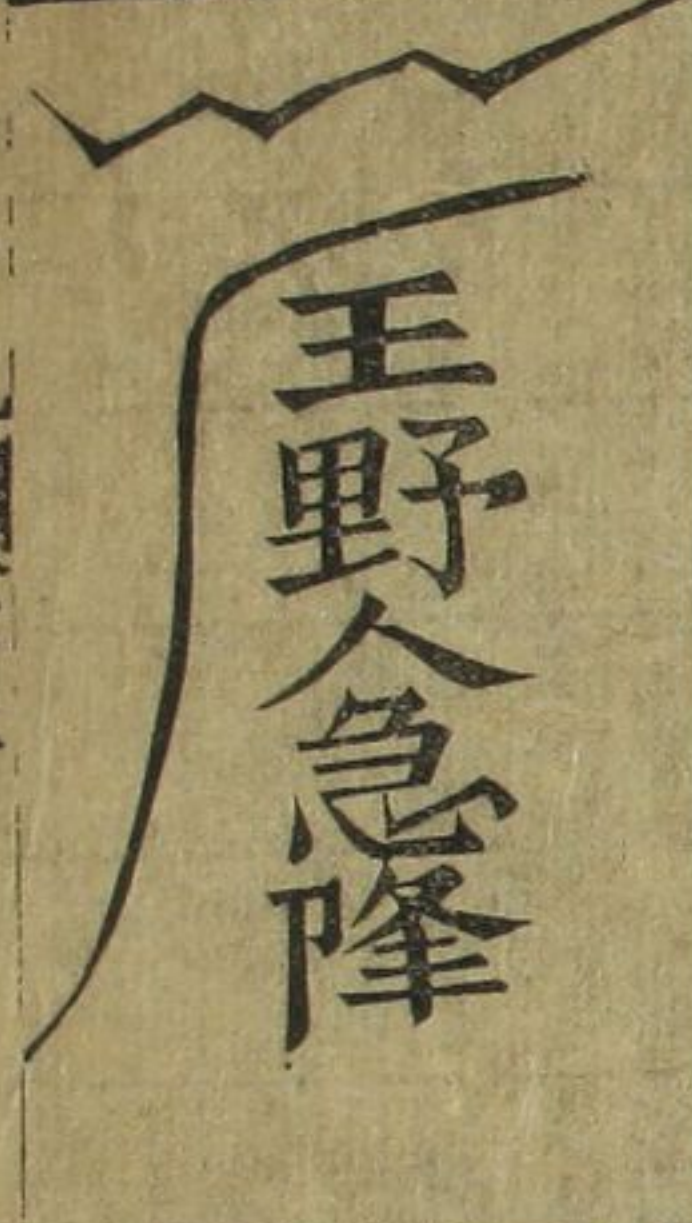 王野人急隆